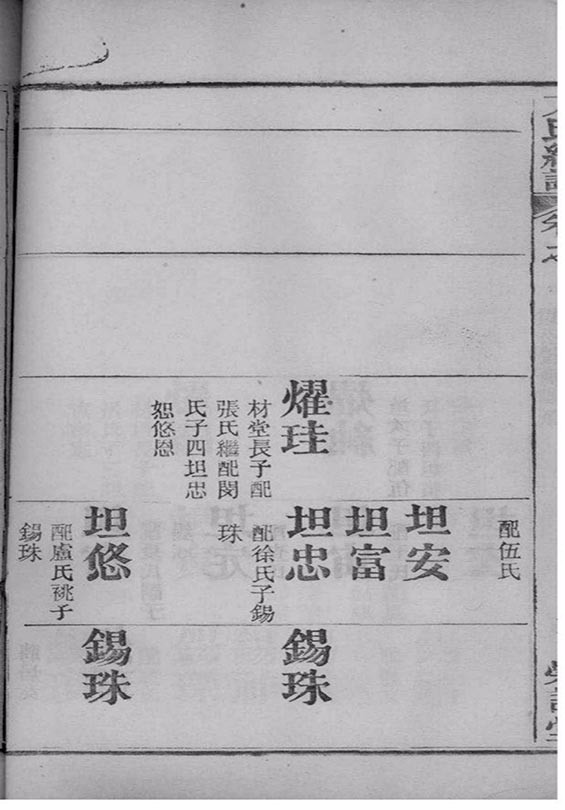 燿珪
材堂長子配
張氏繼配閔
氏子四坦忠
恕悠恩
配伍氏
坦安
坦富
坦忠
配徐氏子錫
珠
坦悠
配盧氏祧子
錫珠
錫珠
錫珠